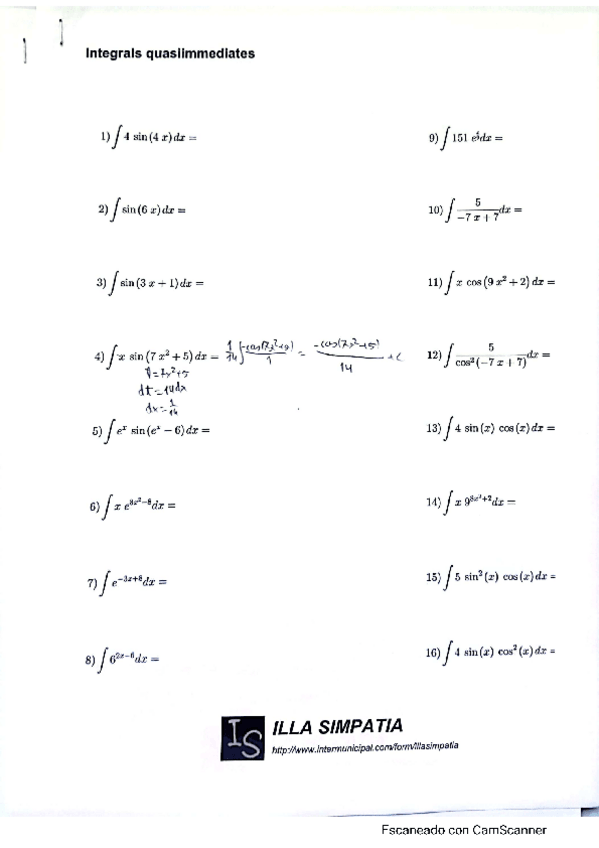 Integrals quasiimmediates
1) ∫ 4 sin (4 x) dx =
2) ∫ sin (6 x) dx =
3) ∫ sin (3 x + 1) dx =
4) ∫ x sin (7 x² + 5) dx = 1/14 ∫ -cos(7x²+9)/1 = -cos(7x²+5)/14 + c
t=7x²+5
dt=14dx
dx=1/14
5) ∫ eˣ sin (eˣ − 6) dx =
6) ∫ x e^(8x²−8) dx =
7) ∫ e^(−3x+8) dx =
8) ∫ 6^(2x−6) dx =
9) ∫ 151 dx =
10) ∫ 5/(−7 x + 7) dx =
11) ∫ x cos (9 x² + 2) dx =
12) ∫ 5/cos²(−7 x + 7) dx =
13) ∫ 4 sin (x) cos (x) dx =
14) ∫ x 9^(8x²+2) dx =
15) ∫ 5 sin² (x) cos (x) dx =
16) ∫ 4 sin (x) cos² (x) dx =
IS ILLA SIMPATIA
http://www.intermunicipal.com/form/illasimpatia
Escaneado con CamScanner